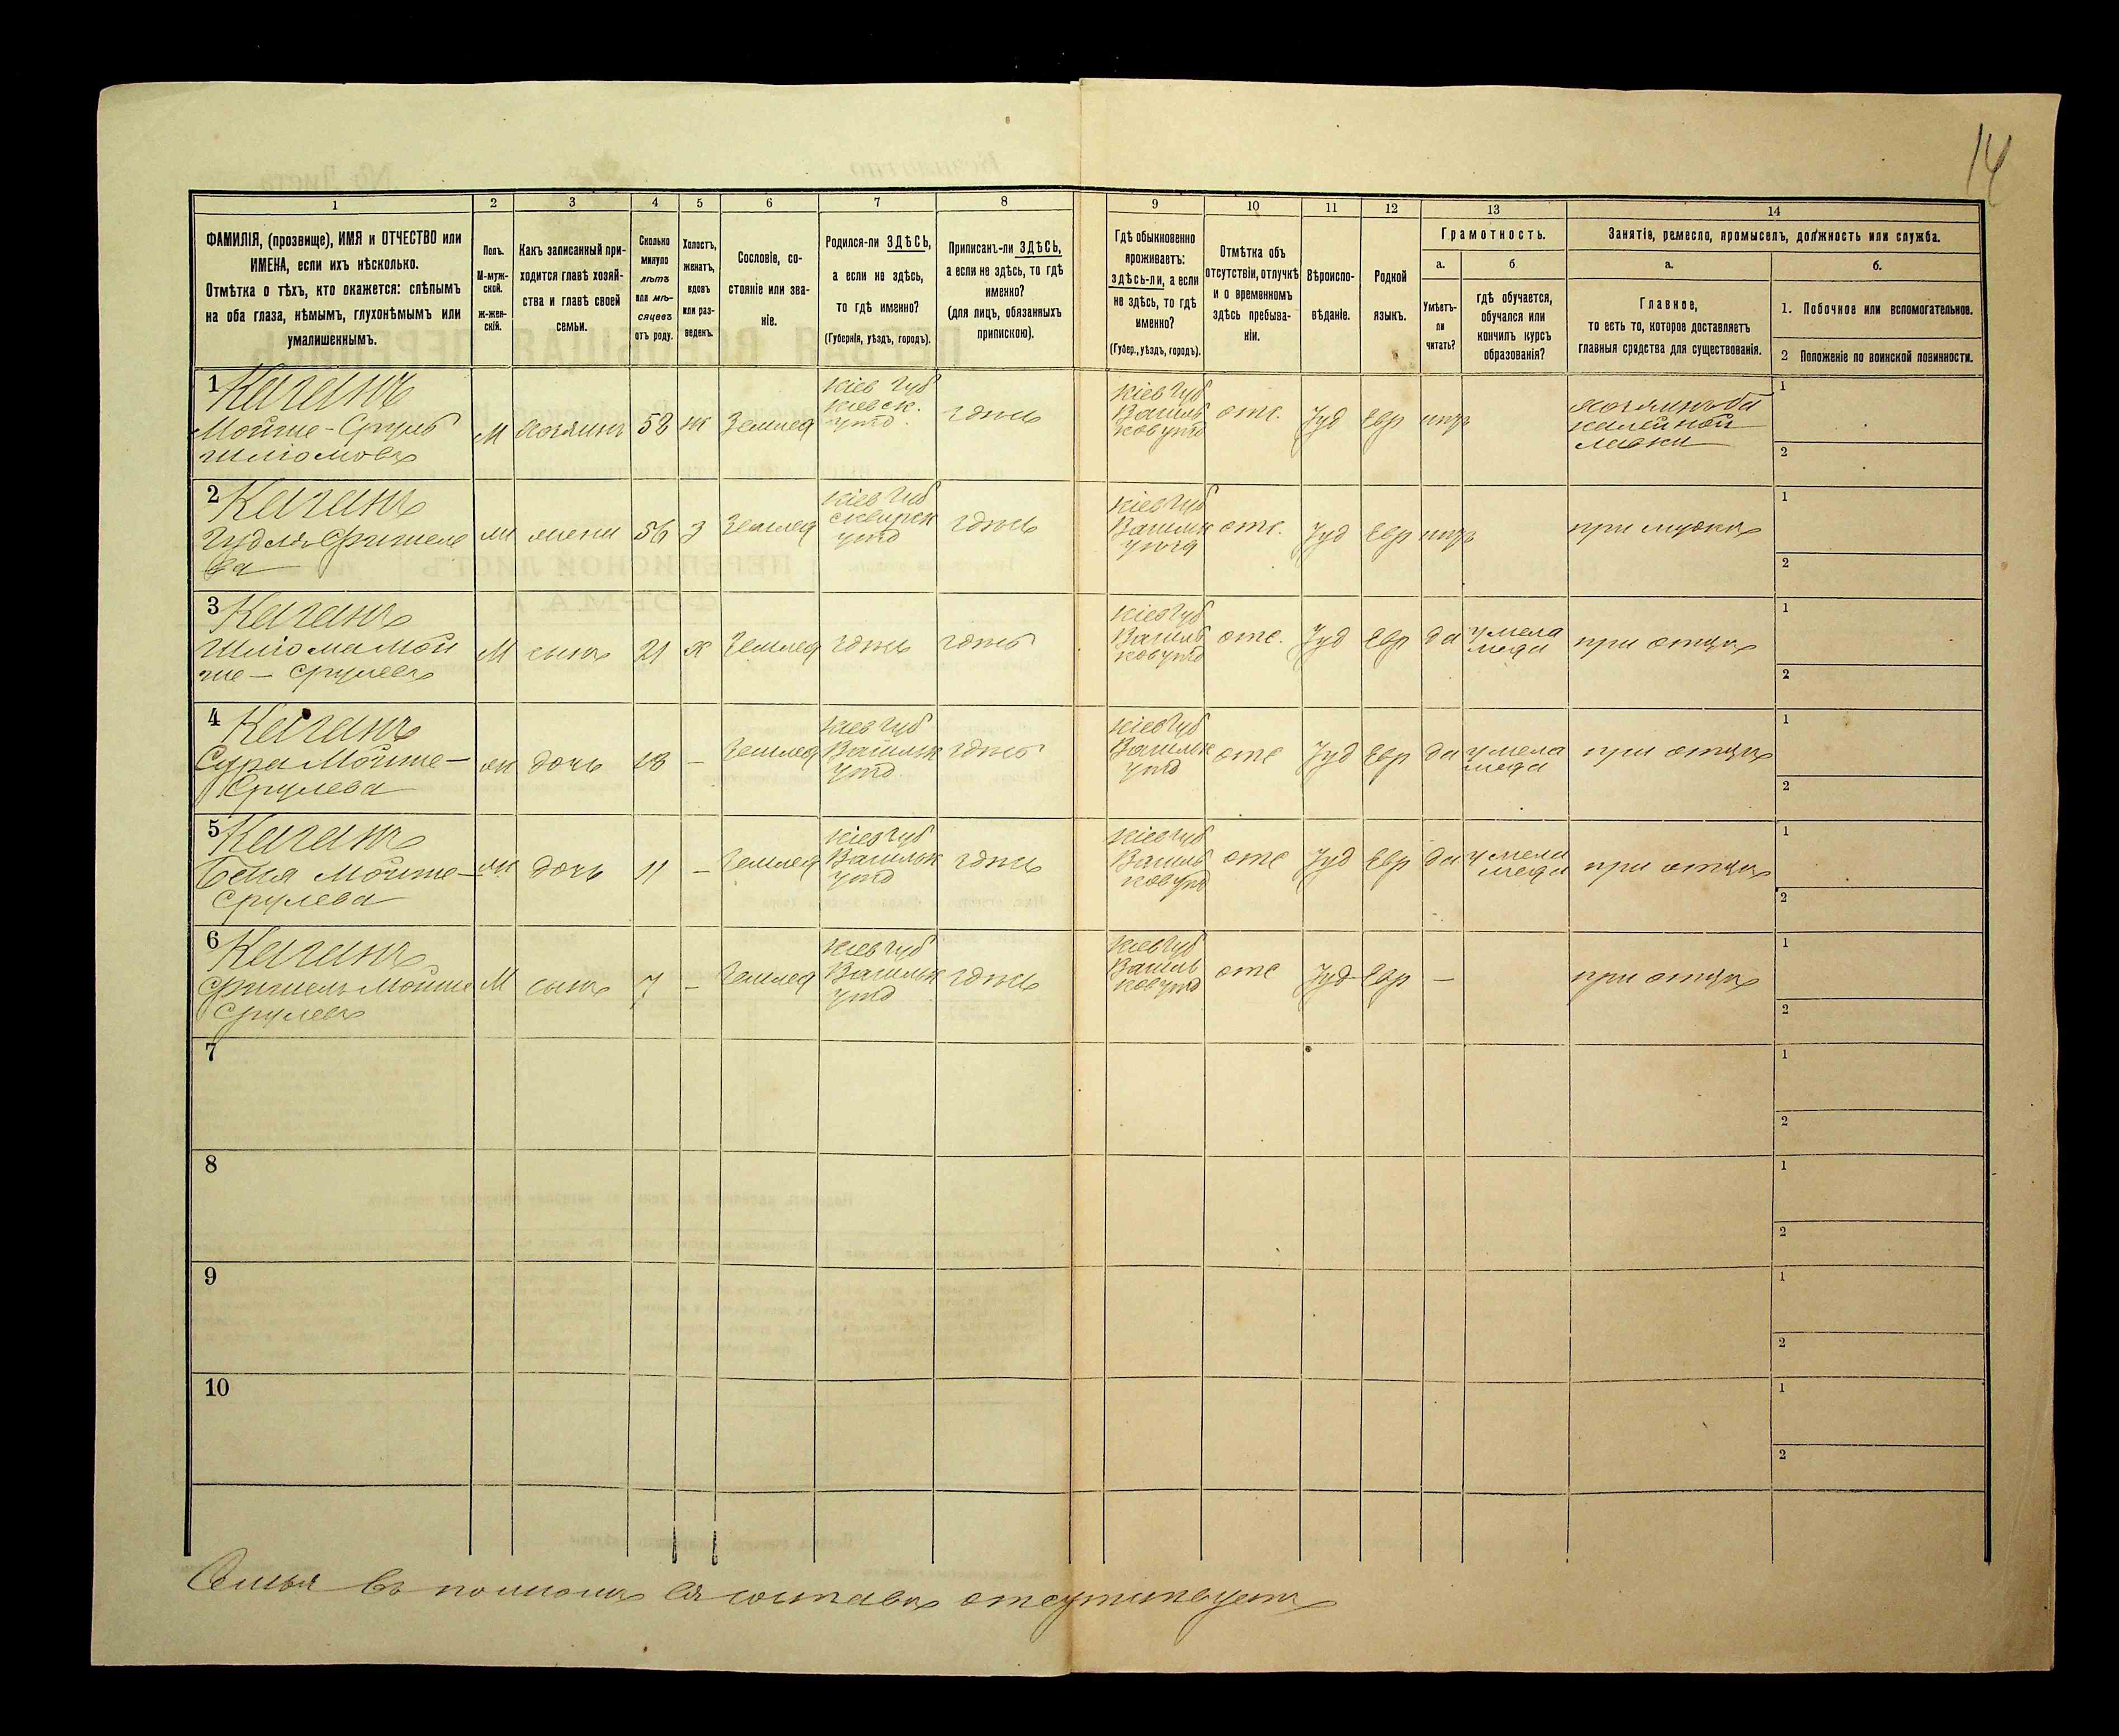 14
1 2 3 4 5 6 7 8 9 10 11 12 13 14
ФАМИЛІЯ, (прозвище), ИМЯ и ОТЧЕСТВО или
ИМЕНА, если ихъ нѣсколько.
Отмѣтка о тѣхъ, кто окажется: слѣпымъ
на оба глаза, нѣмымъ, глухонѣмымъ или
умалишеннымъ.
Полъ.
М-муж-
ской.
Ж-жен-
скій.
Какъ записанный при-
ходится главѣ хозяй-
ства и главѣ своей
семьи.
Сколько
минуло
лѣтъ
или мѣ-
сяцевъ
отъ роду.
Холостъ,
женатъ,
вдовъ
или раз-
веденъ.
Сословіе, со-
стояніе или зва-
ніе.
Родился-ли ЗДѢСЬ,
а если не здѣсь,
то гдѣ именно?
(Губернія, уѣздъ, городъ).
Приписанъ-ли ЗДѢСЬ,
а если не здѣсь, то гдѣ
именно?
(для лицъ, обязанныхъ
припискою).
Гдѣ обыкновенно
проживаетъ:
здѣсь-ли, а если
не здѣсь, то гдѣ
именно?
(Губер., уѣздъ, городъ).
Отмѣтка объ
отсутствіи, отлучкѣ
и о временномъ
здѣсь пребыва-
ніи.
Вѣроиспо-
вѣданіе.
Родной
языкъ.
Грамотность.
а.
Умѣетъ-
ли
читать?
б
гдѣ обучается,
обучался или
кончилъ курсъ
образованія?
Занятіе, ремесло, промыселъ, должность или служба.
а.
Главное,
то есть то, которое доставляетъ
главныя средства для существованія.
б.
1. Побочное или вспомогательное.
2 Положеніе по воинской повинности.
1 Каганъ
Мойше-Сруль
Шліомовъ
М
хозяинъ
58
ж
Землед
Кіев Губ
Кіевск.
уѣзд.
здѣсь
Кіев Губ
Василь
ков уѣзд
отс.
Іуд
Евр
нѣтъ
хозяинъ ба
калейной
лавки
1
2
2 Каганъ
Гудля Фишеле
ва
ж
жена
56
З
Землед
Кіев Губ
Сквирск
уѣзд
здѣсь
Кіев Губ
Васильк
уѣзд
отс.
Іуд
Евр
нѣтъ
при мужѣ
1
2
3 Каганъ
Шліома Мой
ше- Срулевъ
М
сынъ
21
Х
Землед
здѣсь
здѣсь
Кіев Губ
Василь
ков уѣзд
отс.
Іуд
Евр
да
у мела
меда
при отцѣ
1
2
4 Каганъ
Сура Мойше-
Срулева
ж
дочь
18
-
Землед
Кіев Губ
Васильк
уѣзд
здѣсь
Кіев Губ
Васильк
уѣзд
отс
Іуд
Евр
да
у мела
меда
при отцѣ
1
2
5 Каганъ
Бейла Мойше-
Срулева
ж
дочь
11
-
Землед
Кіев Губ
Васильк
уѣзд
здѣсь
Кіев Губ
Василь
ков уѣзд
отс
Іуд
Евр
да
у мела
меда
при отцѣ
1
2
6 Каганъ
Фишель Мойше
Срулевъ
М
сынъ
7
-
Землед
Кіев Губ
Васильк
уѣзд
здѣсь
Кіев Губ
Василь
ков уѣзд
отс
Іуд
Евр
-
при отцѣ
1
2
7
1
2
8
1
2
9
1
2
10
1
2
Семья въ полномъ ея составѣ отсутствуетъ